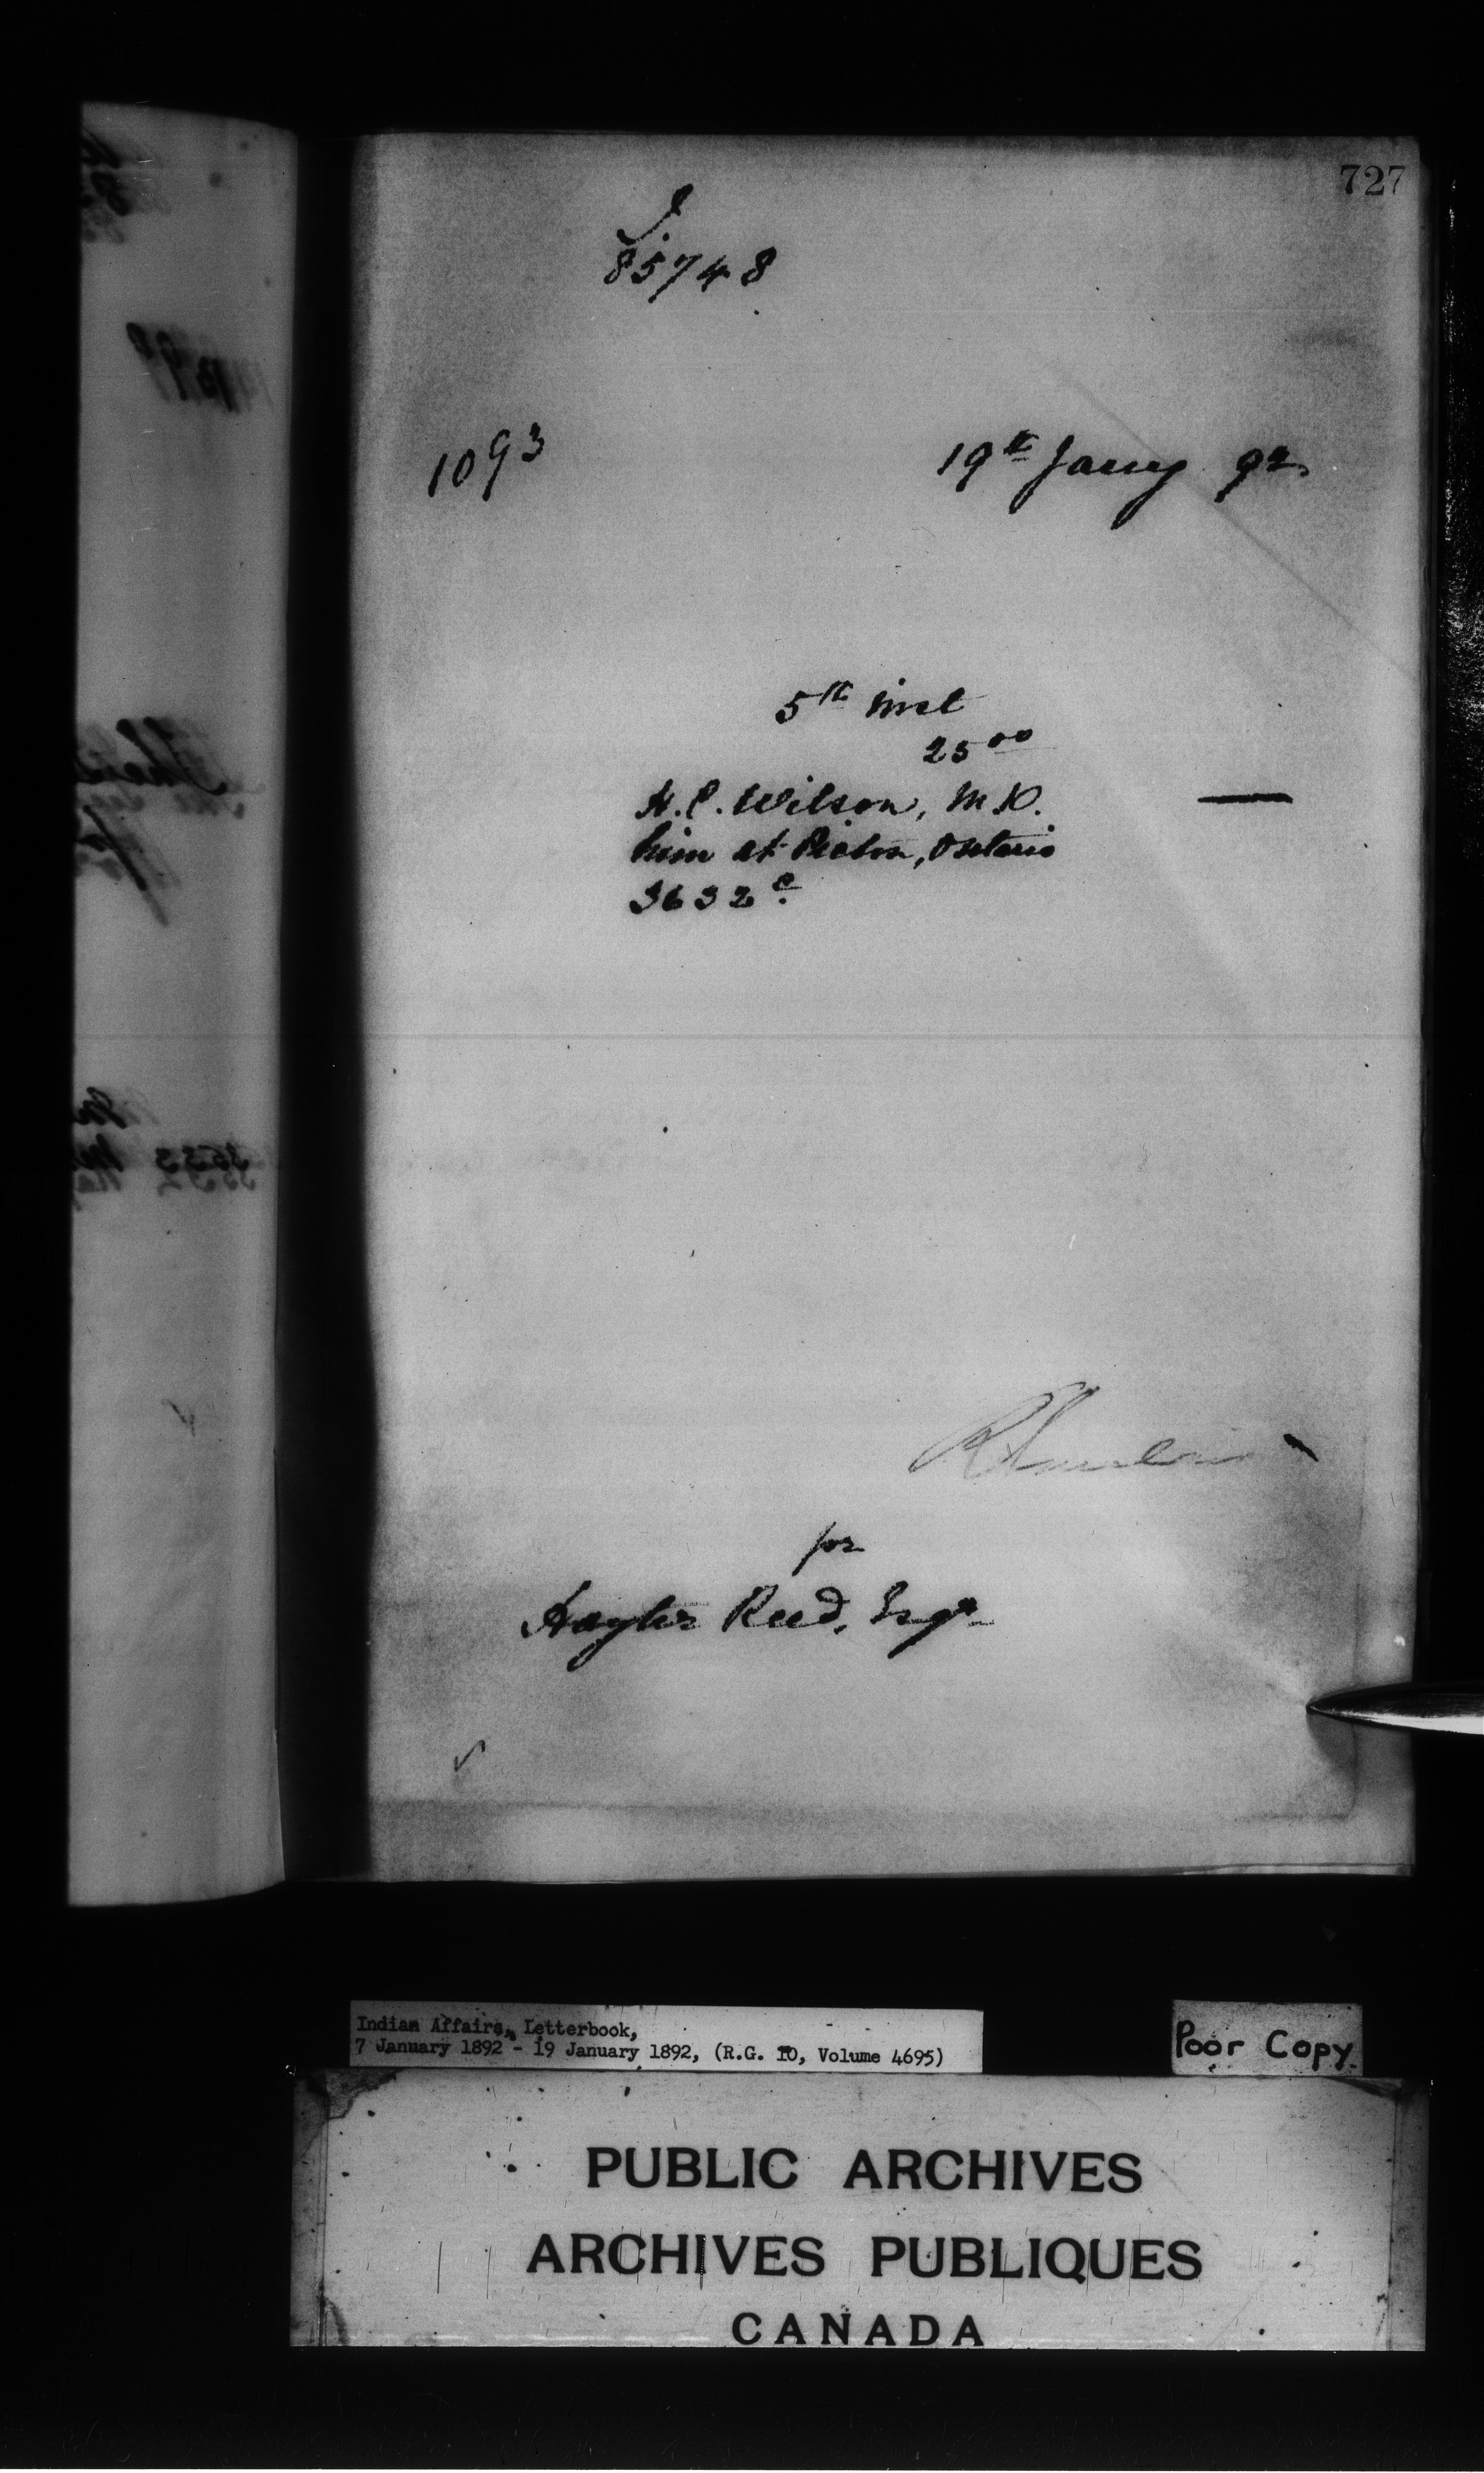 727
85748
1093
19th Jany 92
5th inst
25 00
H.C. Wilson, M.D.
him at Picton, Ontario
3632 c.
for
Hayter Reed, Esqr
Indian Affairs, Letterbook,
7 January 1892 - 19 January 1892, (R.G. 10, Volume 4695)
Poor Copy.
PUBLIC ARCHIVES
ARCHIVES PUBLIQUES
CANADA